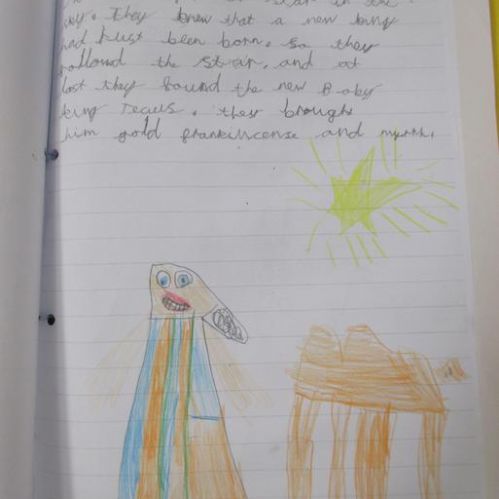 star in the
sky. They knew that a new king
had just been born. so they
follound the star, and at
last they found the new Baby
king Jecus. they brought
him gold frankincense and myrrh.